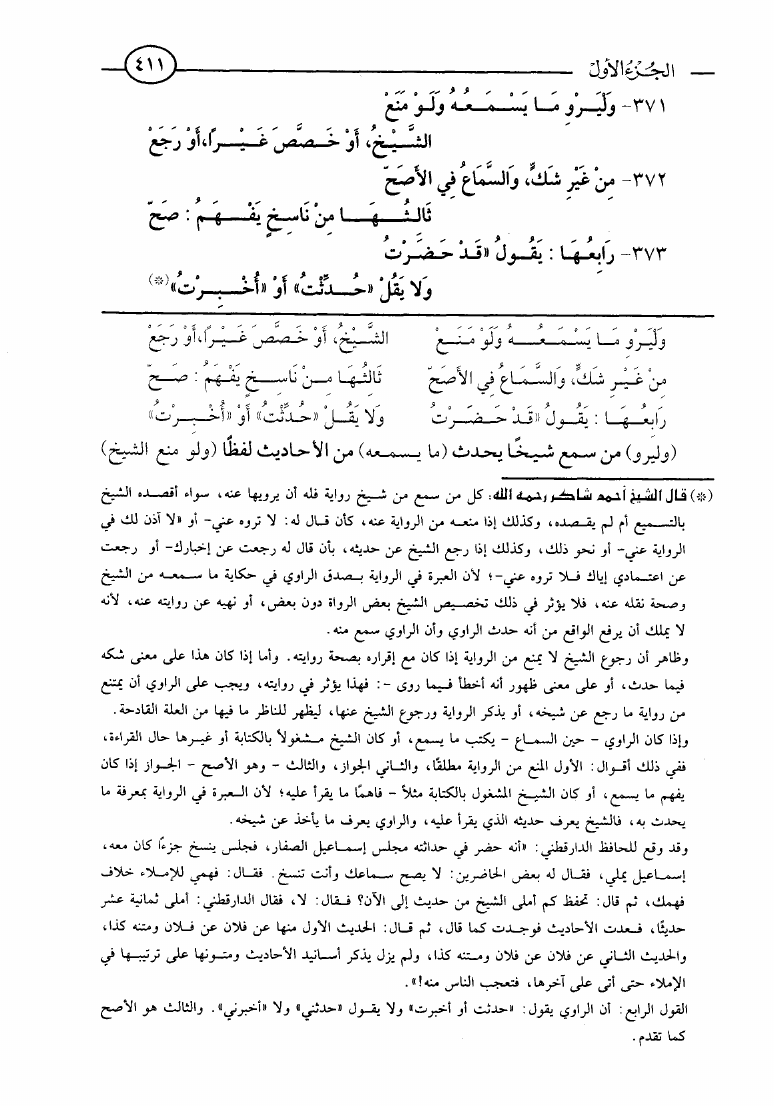 الجُزءُ الأوّلُ
٤١١
٣٧١- وَلْيَرْوِ مَا يَسْمَعُهُ وَلَوْ مَنَعْ
الشَّيْخُ، أَوْ خَصَّصَ غَيْرًا،أَوْ رَجَعْ
٣٧٢- مِنْ غَيْرِ شَكٍّ، وَالسَّمَاعُ فِي الأَصَحّ
ثَالثُهَا مِنْ نَاسِخٍ يَفْهَمُ : صَحّ
٣٧٣- رَابِعُهَا : يَقُولُ «قَدْ حَضَرْتُ
وَلا يَقُلْ «حُدِّثْتُ» أَوْ «أُخْبِرْتُ»(*)
وَلْيَرْوِ مَا يَسْمَعُهُ وَلَوْ مَنَعْ الشَّيْخُ، أَوْ خَصَّصَ غَيْرًا،أَوْ رَجَعْ
مِنْ غَيْرِ شَكٍّ، وَالسَّمَاعُ فِي الأَصَحّ ثَالثُهَا مِنْ نَاسِخٍ يَفْهَمُ : صَحّ
رَابِعُهَا : يَقُولُ «قَدْ حَضَرْتُ وَلا يَقُلْ «حُدِّثْتُ» أَوْ «أُخْبِرْتُ»
(وليرو) من سمع شيخًا يحدث (ما يسمعه) من الأحاديث لفظًا (ولو منع الشيخ)
(*) قال الشيخ أحمد شاكر رحمه الله: كل من سمع من شيخ رواية فله أن يرويها عنه، سواء أقصده الشيخ
بالتسميع أم لم يقصده، وكذلك إذا منعه من الرواية عنه، كأن قال له: لا تروه عني- أو «لا آذن لك في
الرواية عني- أو نحو ذلك، وكذلك إذا رجع الشيخ عن حديثه، بأن قال له رجعت عن إخبارك- أو رجعت
عن اعتمادي إياك فلا تروه عني-؛ لأن العبرة في الرواية بصدق الراوي في حكاية ما سمعه من الشيخ
وصحة نقله عنه، فلا يؤثر في ذلك تخصيص الشيخ بعض الرواة دون بعض، أو نهيه عن روايته عنه، لأنه
لا يملك أن يرفع الواقع من أنه حدث الراوي وأن الراوي سمع منه.
وظاهر أن رجوع الشيخ لا يمنع من الرواية إذا كان مع إقراره بصحة روايته. وأما إذا كان هذا على معنى شكه
فيما حدث، أو على معنى ظهور أنه أخطأ فيما روى -: فهذا يؤثر في روايته، ويجب على الراوي أن يمتنع
من رواية ما رجع عن شيخه، أو يذكر الرواية ورجوع الشيخ عنها، ليظهر للناظر ما فيها من العلة القادحة.
وإذا كان الراوي - حين السماع - يكتب ما يسمع، أو كان الشيخ مشغولاً بالكتابة أو غيرها حال القراءة،
ففي ذلك أقوال: الأول المنع من الرواية مطلقًا، والثاني الجواز، والثالث - وهو الأصح - الجواز إذا كان
يفهم ما يسمع، أو كان الشيخ المشغول بالكتابة مثلاً - فاهمًا ما يقرأ عليه؛ لأن العبرة في الرواية بمعرفة ما
يحدث به، فالشيخ يعرف حديثه الذي يقرأ عليه، والراوي يعرف ما يأخذ عن شيخه.
وقد وقع للحافظ الدارقطني: «أنه حضر في حداثته مجلس إسماعيل الصفار، فجلس ينسخ جزءًا كان معه،
إسماعيل يملي، فقال له بعض الحاضرين: لا يصح سماعك وأنت تنسخ. فقال: فهمي للإملاء خلاف
فهمك، ثم قال: تحفظ كم أملى الشيخ من حديث إلى الآن؟ فقال: لا، فقال الدارقطني: أملى ثمانية عشر
حديثًا، فعدت الأحاديث فوجدت كما قال، ثم قال: الحديث الأول منها عن فلان عن فلان ومتنه كذا،
والحديث الثاني عن فلان عن فلان ومتنه كذا، ولم يزل يذكر أسانيد الأحاديث ومتونها على ترتيبها في
الإملاء حتى أتى على آخرها، فتعجب الناس منه!».
القول الرابع: أن الراوي يقول: «حدثت أو أخبرت» ولا يقول «حدثني» ولا «أخبرني». والثالث هو الأصح
كما تقدم.